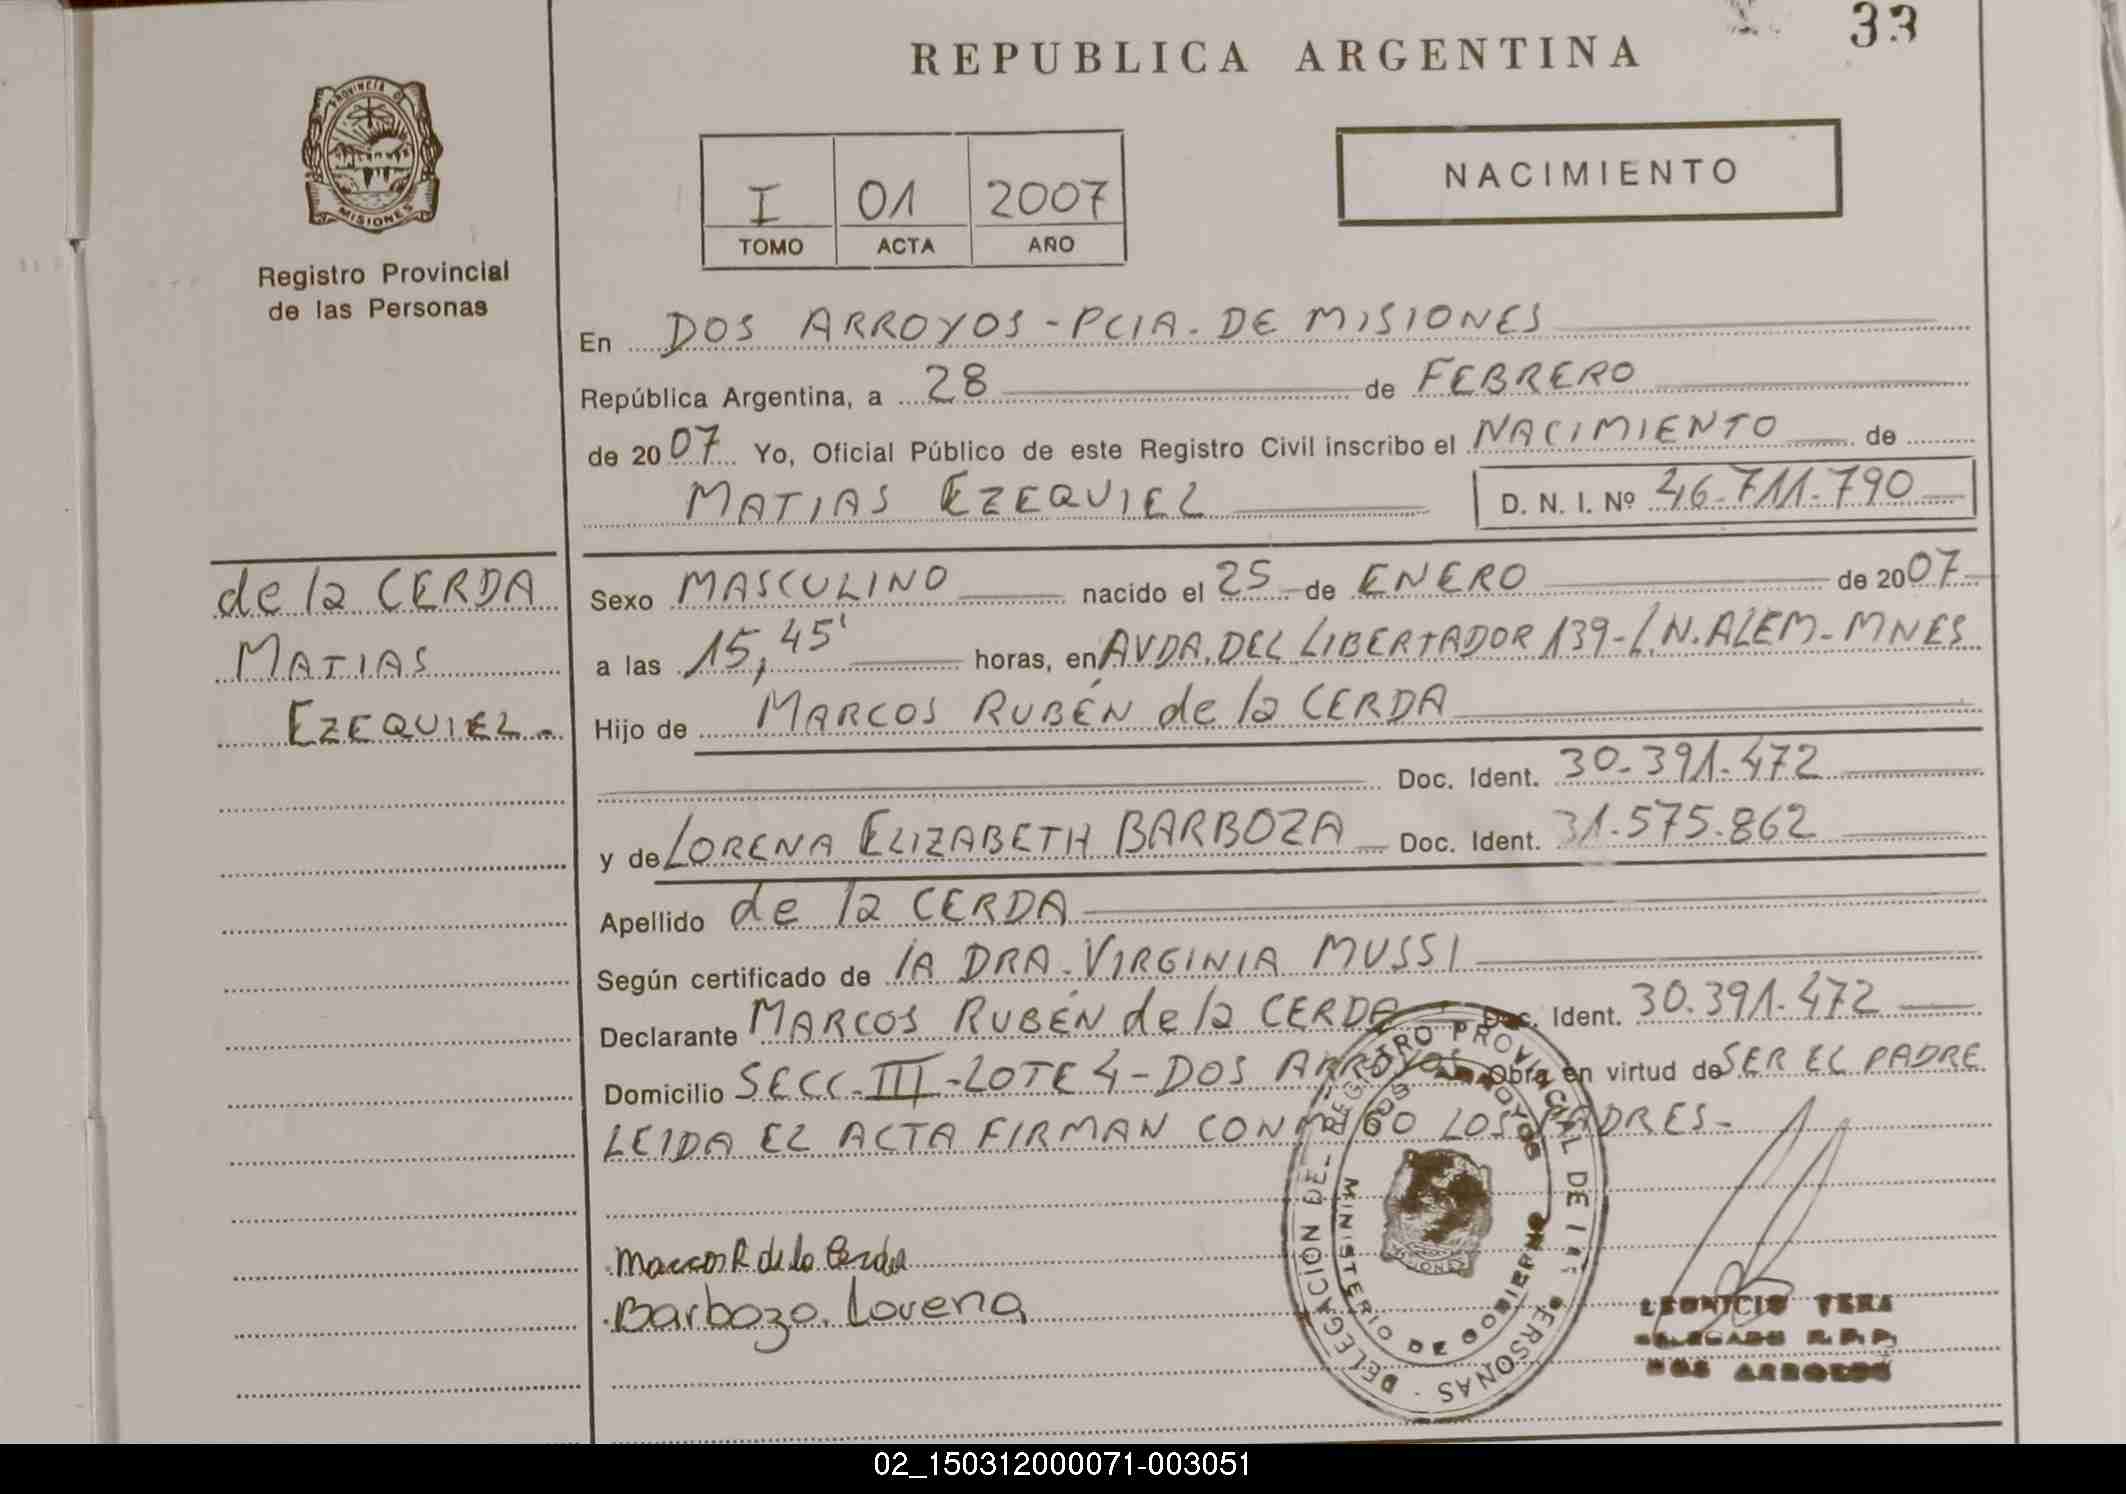 33
REPUBLICA ARGENTINA
PROVINCIA DE
MISIONES
Registro Provincial
de las Personas
I 01 2007
TOMO ACTA AÑO
NACIMIENTO
En DOS ARROYOS - PCIA. DE MISIONES
República Argentina, a 28 de FEBRERO
de 2007 Yo, Oficial Público de este Registro Civil inscribo el NACIMIENTO de
MATIAS EZEQUIEL D. N. I. Nº 46.711.790
de la CERDA
MATIAS
EZEQUIEL.-
Sexo MASCULINO nacido el 25 de ENERO de 2007
a las 15,45' horas, en AVDA. DEL LIBERTADOR 139-L.N. ALEM-MNES
Hijo de MARCOS RUBÉN de la CERDA
Doc. Ident. 30.391.472
y de LORENA ELIZABETH BARBOZA Doc. Ident. 31.575.862
Apellido de la CERDA
Según certificado de lA DRA. VIRGINIA MUSSI
Declarante MARCOS RUBÉN de la CERDA Doc. Ident. 30.391.472
Domicilio SECC-III-LOTE 4-DOS ARROYOS Obra en virtud de SER EL PADRE
LEIDA EL ACTA FIRMAN CONMIGO LOS PADRES-
Marcos R de la Cerda
Barbozo. Lorena
DELEGACION DE REGISTRO PROVINCIAL DE LAS PERSONAS
DOS ARROYOS
MINISTERIO DE GOBIERNO
DELEGADO R.P.P.
DOS ARROYOS
02_150312000071-003051